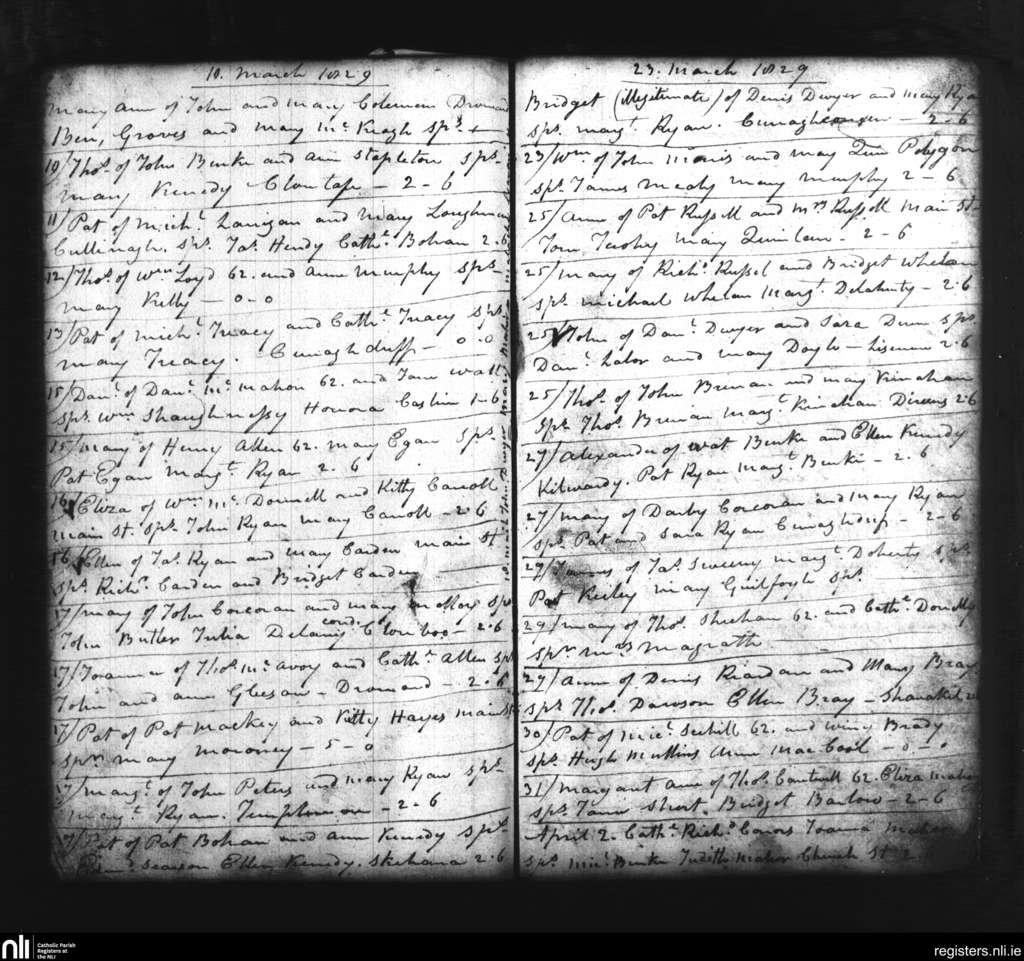 10. March 1829
Mary Ann of John and Mary Coleman
Ben, Groves and Mary Mc Keogh sps.
10/ Thos. of John Burke and Ann Stapleton sps.
Mary Kenedy Clontafe - 2-6
11/ Pat of Michl. Lanigan and Mary Loughnan
Cullinagh. sps. Jas. Hendy Cathe. Bohan 2.6
12/ Thos. of Wm Loyd 62. and Ann Murphy sps.
Mary Kelly - 0-0
13/ Pat of Michl. Treacy and Cathe. Treacy sps.
Mary Treacy. Cunaghduff - 0.0
15/ Danl. of Danl. McMahon 62. and Jane Wall
sps. Wm Shaughnessy Honora Cashin 1-6
15/ Mary of Henry Allen 62. Mary Egan sps.
Pat Egan Margt. Ryan 2.6
16/ Eliza of Wm Mc Donnell and Kitty Carroll
Main St. sps. John Ryan Mary Carroll - 2-6
16/ Ellen of Jas. Ryan and Mary Carden Main St.
sps. Richd. Carden and Bridget Carden
17/ Mary of John Corcoran and Mary sps
John Butler Julia Delany 2.6
17/ Joanna of Thos. McAvoy and Cathe. Allen sps
John and Ann Gleeson - Dromard - 2.6
17/ Pat of Pat Mackey and Kitty Hayes Main St
spr. Mary Moroney - 5-0
17/ Margt. of John Peters and Mary Ryan sps.
Margt. Ryan. Templemore - 2-6
17/ Pat of Pat Bohan and Ann Kenedy sps.
Ellen Kenedy. Skehana 2.6
23. March 1829
Bridget (Illegitimate) of Denis Dwyer and Mary Ryan
sps. Margt. Ryan. - 2-6
23/ Wm of John Morris and Mary Quin Polygon
sps. James Meahy Mary Murphy 2-6
25/ Ann of Pat Russell and Mrs Russell Main St.
Tom Tuohy Mary Quinlan - 2-6
25/ Mary of Richd. Russel and Bridget Whelan
sps. Michael Whelan Margt. Delahunty - 2.6
25/ John of Danl. Dwyer and Sara Dunn sps
Danl. Lalor and Mary Doyle - 2.6
25/ Thos. of John Brenan and Mary Kinahan
sps. Thos. Brenan Margt. Kinahan 2.6
27/ Alexander of Wat Burke and Ellen Kenedy
Kilwardy. Pat Ryan Margt. Burke - 2.6
27/ Mary of Darby Corcoran and Mary Ryan
sps. Pat and Sara Ryan Cunaghduff - 2-6
29/ James of Jas. Sweeny Margt. Doherty sps.
Pat Keiley Mary Guilfoyle sps.
29/ Mary of Thos. Sheehan 62. and Cathe. Donelly
spr. Mrs Magrath
29/ Ann of Denis Riordan and Mary Bray
sps. Thos. Dawson Ellen Bray - Shanakil
30/ Pat of Mic. 62. and Winy Brady
sps. Hugh Mullins Ann Mac Cool - 0-0
31/ Margaret Ann of Thos. Cantwell 62. Eliza
sps. Jane Short Bridget Barlow - 2-6
April 2. Cathe. Richd. Conors Joana
sps. Mic. Burke Judith Mahor Church St
nli
Catholic Parish
Registers at
the NLI
registers.nli.ie